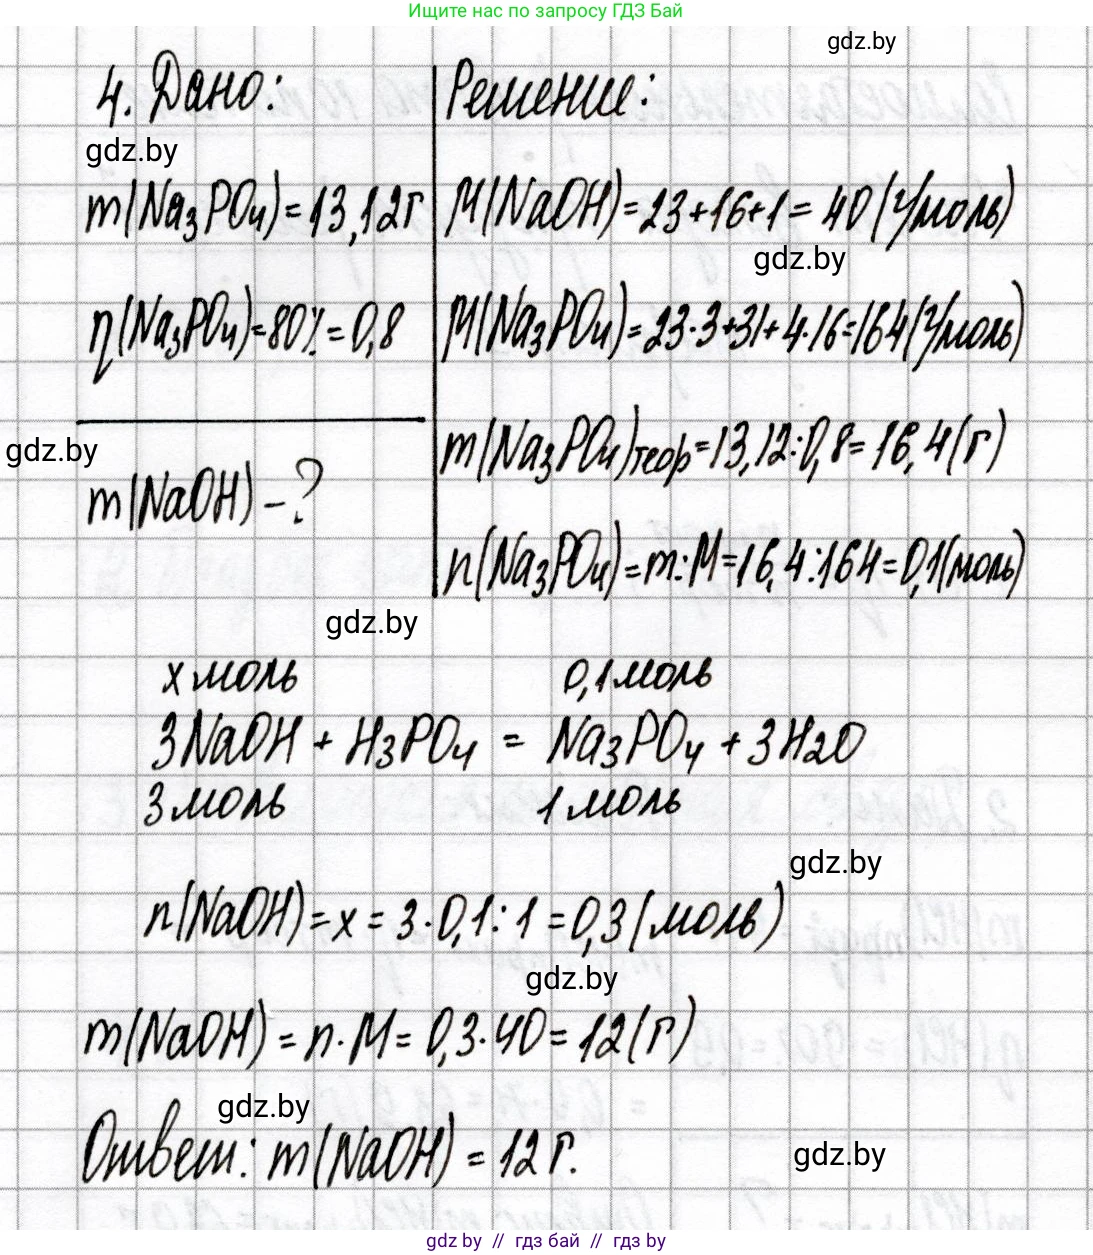 Ищите нас по запросу ГДЗ Бай
gdz.by
4. Дано:
Решение:
gdz.by
m(Na₃PO₄)=13,12г
M(NaOH)=23+16+1=40(г/моль)
gdz.by
η(Na₃PO₄)=80%=0,8
M(Na₃PO₄)=23·3+31+4·16=164(г/моль)
gdz.by
m(NaOH)-?
m(Na₃PO₄)теор=13,12:0,8=16,4(г)
n(Na₃PO₄)=m:M=16,4:164=0,1(моль)
gdz.by
x моль 0,1 моль
3NaOH + H₃PO₄ = Na₃PO₄ + 3H₂O
3 моль 1 моль
gdz.by
n(NaOH)=x=3·0,1:1=0,3(моль)
gdz.by
m(NaOH)=n·M=0,3·40=12(г)
gdz.by
Ответ: m(NaOH)=12г.
gdz.by
gdz by // гдз бай // gdz by